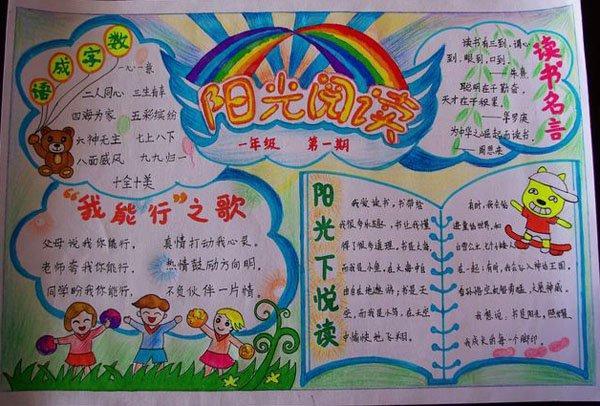 数字成语
一心一意
二人同心 三生有幸
四海为家 五彩缤纷
六神无主 七上八下
八面威风 九九归一
十全十美
阳光阅读
一年级 第一期
读书名言
读书有三到，谓心
到，眼到，口到。
——朱熹
聪明在于勤奋，
天才在于积累。
——华罗庚
为中华之崛起而读书。
——周恩来
“我能行”之歌
父母说我你能行， 真情打动我心灵。
老师夸我你能行， 热情鼓励方向明。
同学盼我你能行， 不负伙伴一片情。
阳光下悦读
我爱读书，书带给
我很多乐趣，书也让我懂
得了很多道理。书是大海，
而我是小鱼，在大海中自
由自在地遨游；书是天
空，而我是小鸟，在天空
中愉快地飞翔。
有时，我来到
进童话世界，如
白雪公主、七个小矮人
在一起；有时，我会记入神话王国，
我想说：书是阳光，照耀
我成长的每一个脚印。